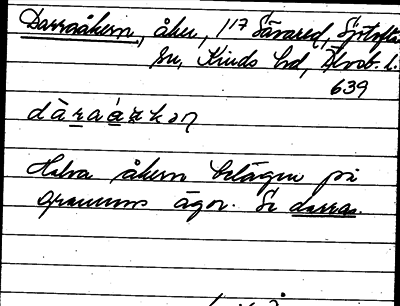 Darraåkern, åker, 1/7 Sävared, Sjötofta
sn, Kinds hd, Älvsb. l.
639
dàraákəṇ
Halva åkern belägen på
grannens ägor. Se darra.